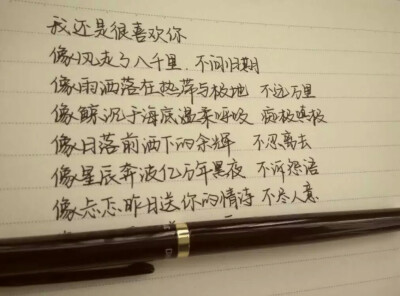 我还是很喜欢你
像风走了八千里 不问归期
像雨洒落在热带与极地 不远万里
像鲸沉于海底温柔呼吸 痴极嗔极
像日落前洒下的余辉 不忍离去
像星辰奔波亿万年黑夜 不诉怨语
像忐忑昨日送你的情诗 不尽人意